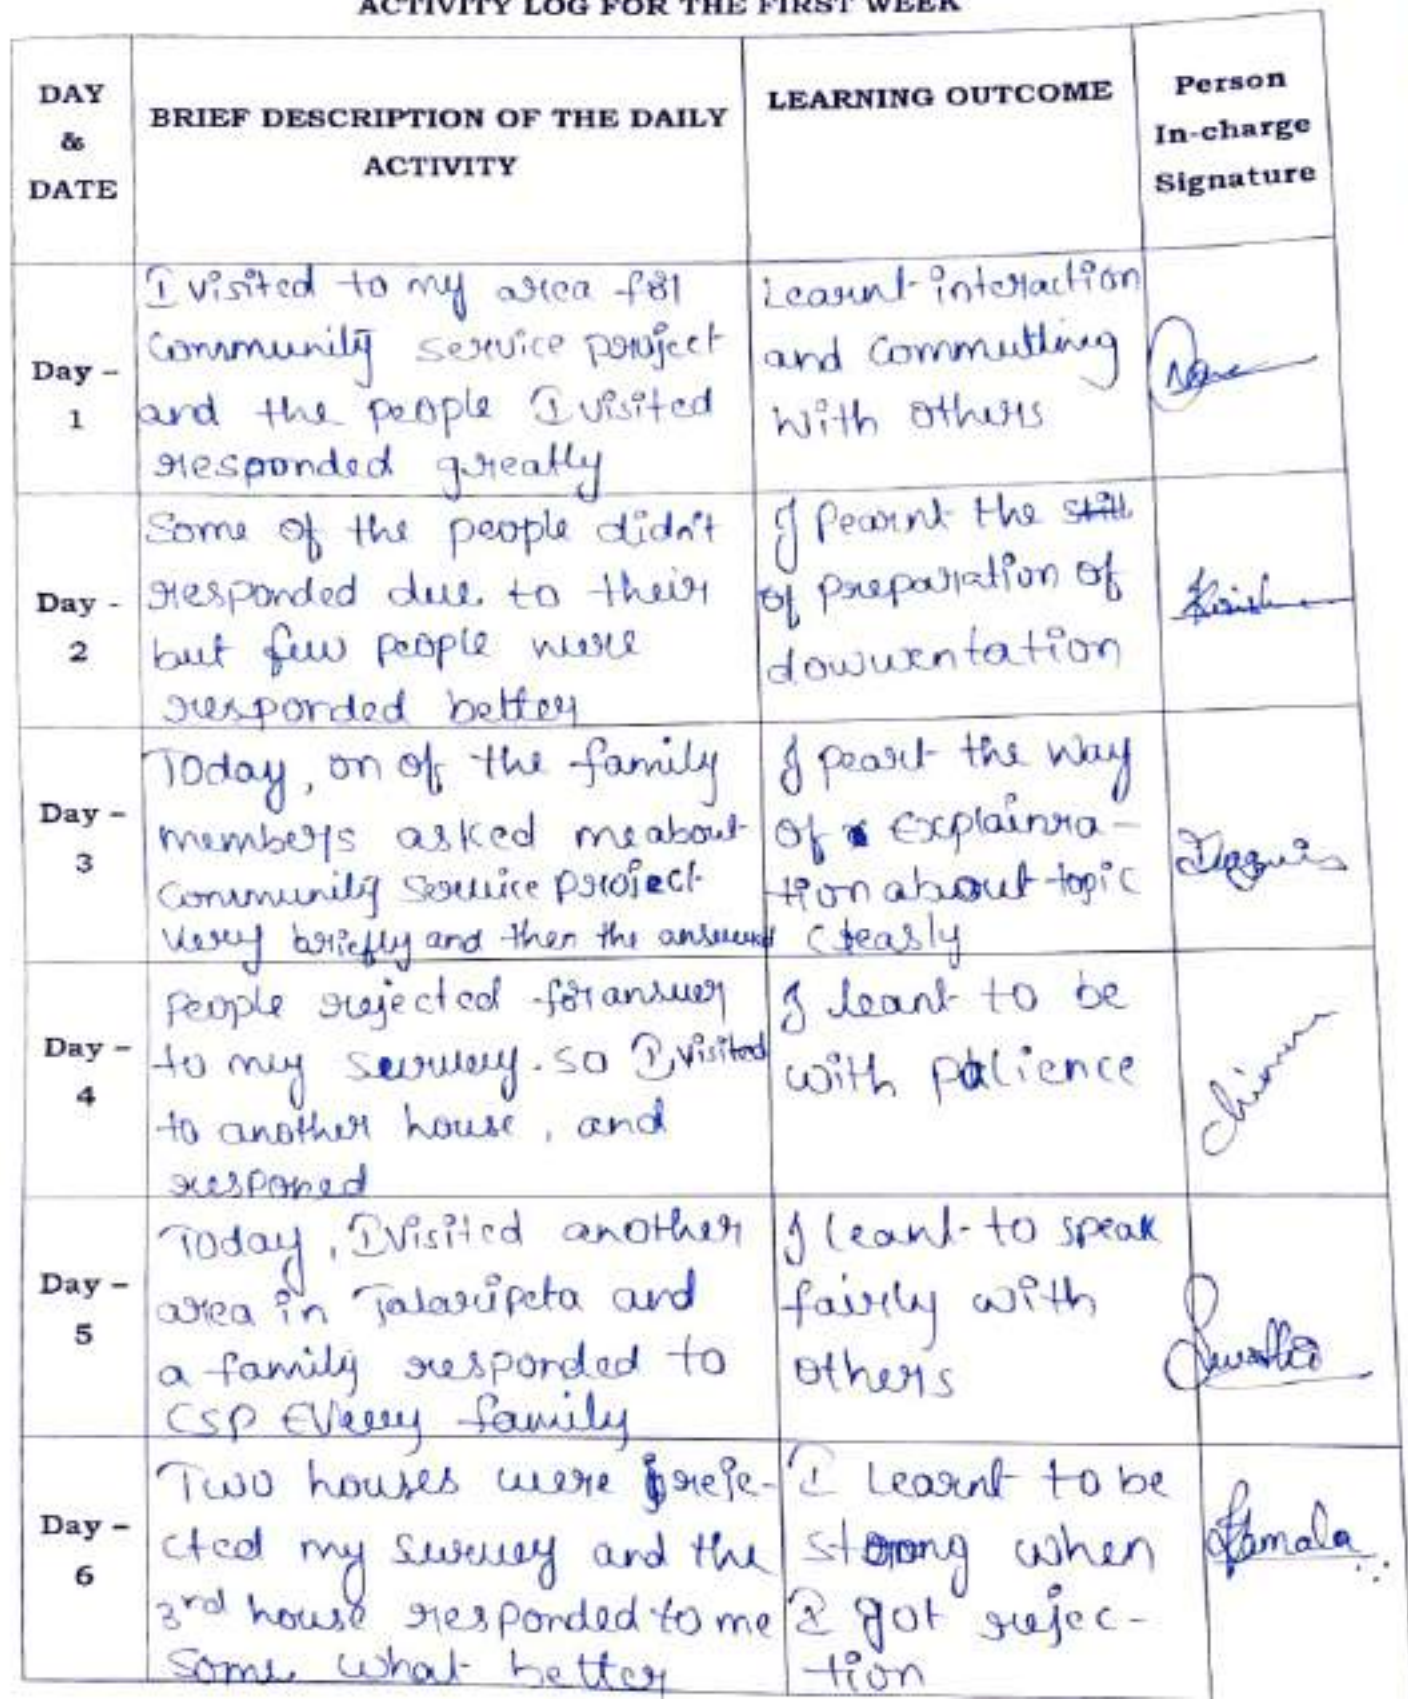 ACTIVITY LOG FOR THE FIRST WEEK
DAY
&
DATE
BRIEF DESCRIPTION OF THE DAILY
ACTIVITY
LEARNING OUTCOME
Person
In-charge
Signature
Day –
1
I visited to my area for
Community service project
and the people I visited
responded greatly
Learnt interaction
and commutting
with others
Day -
2
Some of the people didn't
responded due to their
but few people were
responded better
I learnt the still
of preparation of
dowuentation
Day –
3
Today, on of the family
members asked me about
Community Service project
very briefly and then the answered
I peart the way
of explainra –
tion about topic
Cleasly
Day –
4
People rejected for answer
to my survey. so I visited
to another house, and
responed
I leant to be
with patience
Day –
5
Today, I visited another
area in Talaripeta and
a family responded to
CSP Every family
I leant to speak
fairly with
others
Day –
6
Two houses were reje-
cted my survey and the
3rd house responded to me
some what better
I learnt to be
strong when
I got rejec-
tion
Kamala